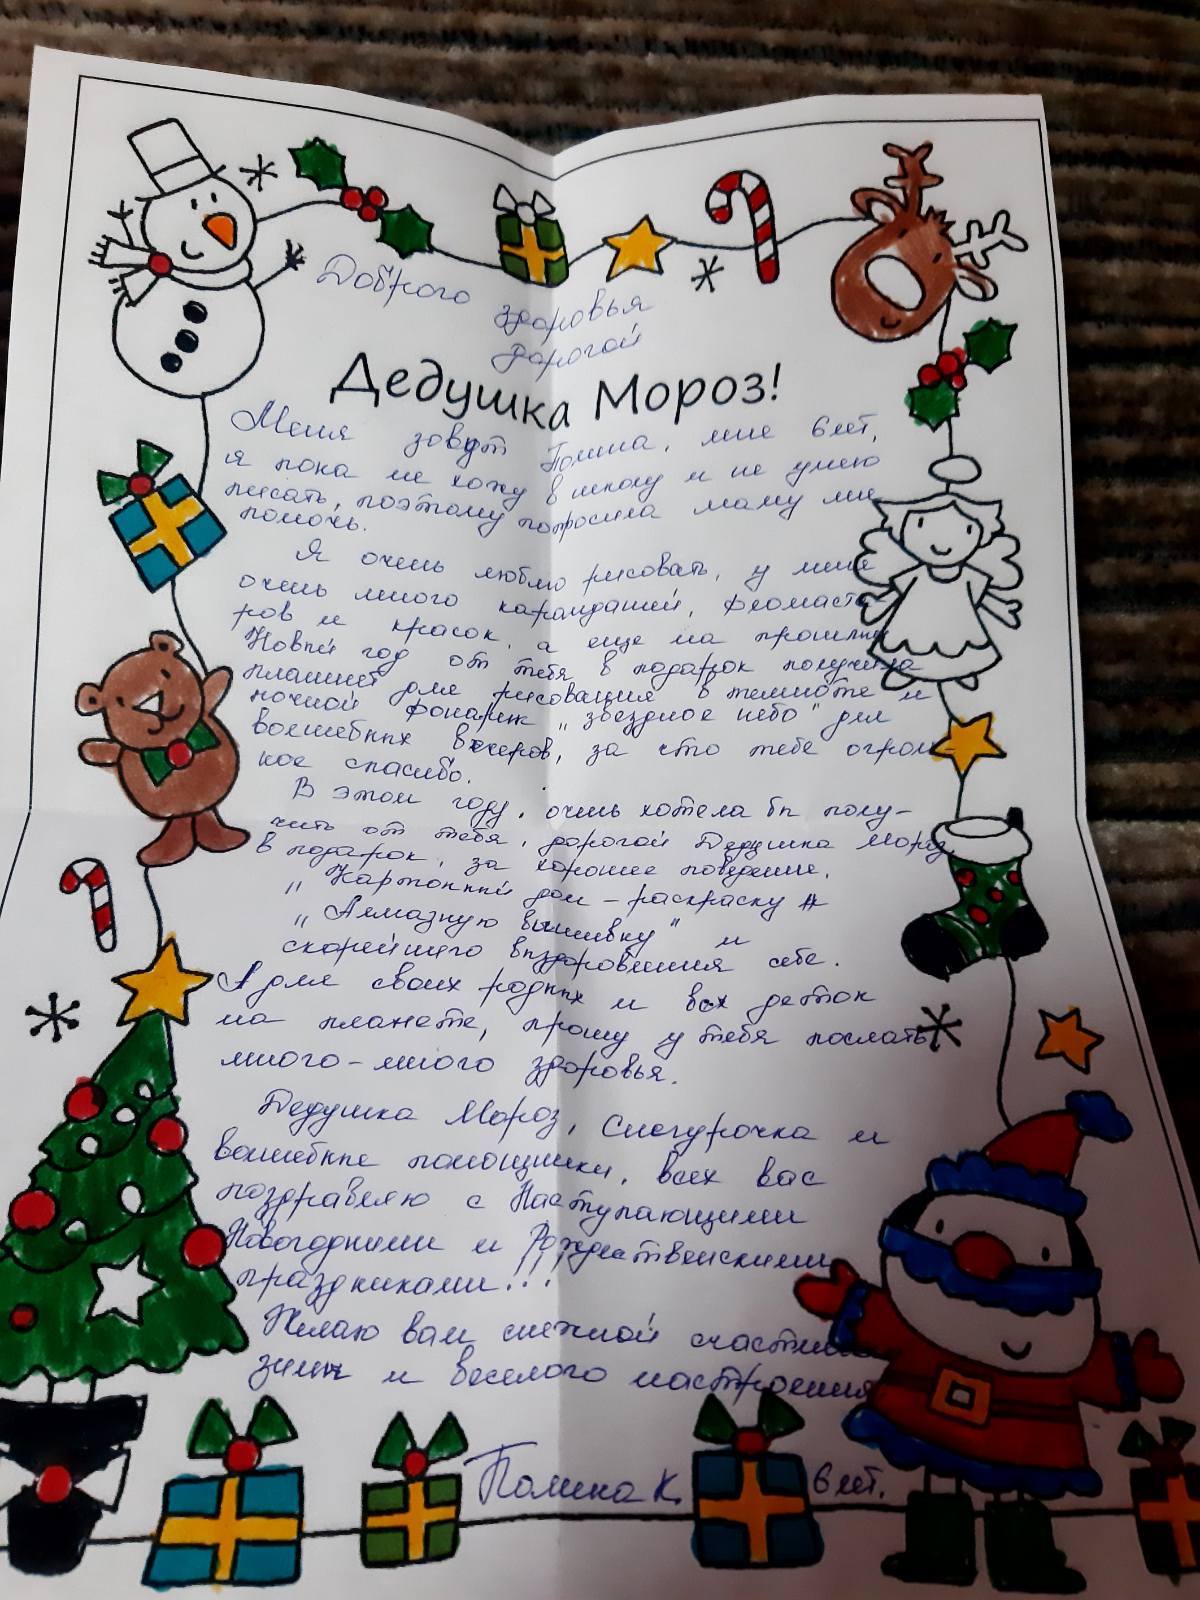 Доброго здоровья
дорогой
Дедушка Мороз!
Меня зовут Полина, мне 6 лет,
я пока не хожу в школу и не умею
писать, поэтому попросила маму мне
помочь.
Я очень люблю рисовать, у меня
очень много карандашей, фломасте
ров и красок, а еще на прошлый
Новый год от тебя в подарок получила
планшет для рисования в темноте и
ночной фонарик "звездное небо" для
волшебных вечеров, за что тебе огром
ное спасибо.
В этом году, очень хотела бы полу-
чить от тебя, дорогой Дедушка Мороз,
в подарок, за хорошее поведение,
"Картонный дом - раскраску
"Алмазную вышивку" и
скорейшего выздоровления себе.
А для своих родных и всех деток
на планете, прошу у тебя послать
много-много здоровья.
Дедушка Мороз, Снегурочка и
волшебные помощники, всех вас
поздравляю с Наступающими
Новогодними и Рождественскими
праздниками!!!
Желаю вам снежной счастливой
зимы и веселого настроения
Полина К. 6 лет.